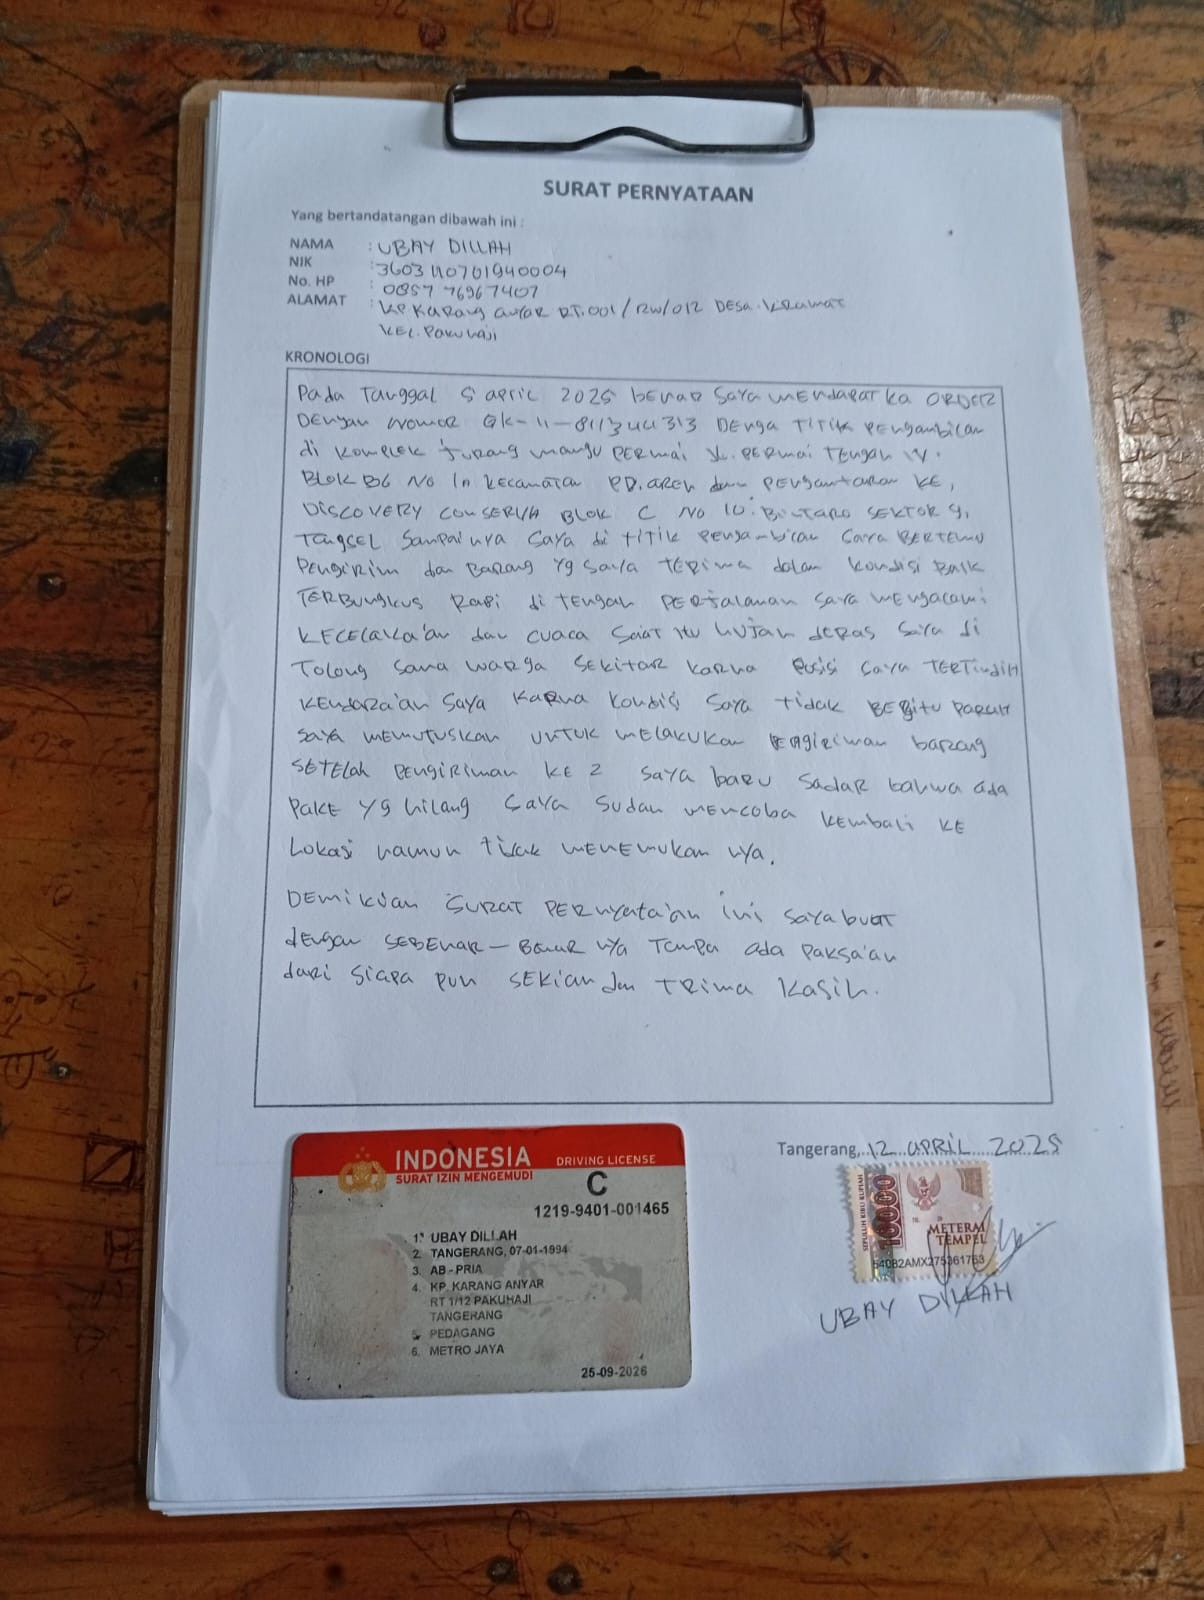 SURAT PERNYATAAN
Yang bertandatangan dibawah ini :
NAMA : UBAY DILLAH
NIK : 3603110701940004
No. HP : 0857 76967407
ALAMAT : KP. Karang anyar RT.001/RW/012 Desa. Kramat
KEC. Pakuhaji
KRONOLOGI
Pada Tanggal 5 april 2025 benar saya mendapat ka ORDER
Dengan Nomor GK-11-811344313 Denga TiTik Pengambilan
di Komplek Jurang mangu PERMAI Jl. PERMAI Tengah IV.
BLOK B6 No 1A Kecamatan PD. aren dan PENgantaran KE,
DISCOVERY CONSERVA BLOK C No 10. Bintaro SEKTOR 9,
Tangsel Sampainya saya di TiTik Pengambilan saya BERTEMU
Pengirim dan Barang yg saya TERima dalam kondisi Baik
TERBungkus Rapi di Tengah PERJalanan saya mengalami
KECELaKa'an dan cuaca saat itu hujan deras saya di
Tolong sama warga sekitar karna Posisi saya TERTindih
KEndara'an saya KaRna kondisi saya tidak BEgitu Parah
saya memutuskan UNTUK melakukan Pengiriman barang
SETElah Pengiriman KE 2 saya baru sadar bahwa ada
Paket yg hilang saya sudah mencoba Kembali KE
Lokasi namun tidak menemukan nya.
DEMIKian SURAT PERnyata'an ini saya buat
dengan SEBENAR-Benar nya Tanpa ada Paksa'an
dari siapa pun SEKian dan TRima Kasih.
Tangerang, 12 APRIL 2025
INDONESIA DRIVING LICENSE
SURAT IZIN MENGEMUDI
C
1219-9401-001465
1. UBAY DILLAH
2. TANGERANG, 07-01-1994
3. AB - PRIA
4. KP. KARANG ANYAR
RT 1/12 PAKUHAJI
TANGERANG
5. PEDAGANG
6. METRO JAYA
25-09-2026
SEPULUH RIBU RUPIAH
10000
METERAI
TEMPEL
640B2AMX275361763
UBAY DILLAH